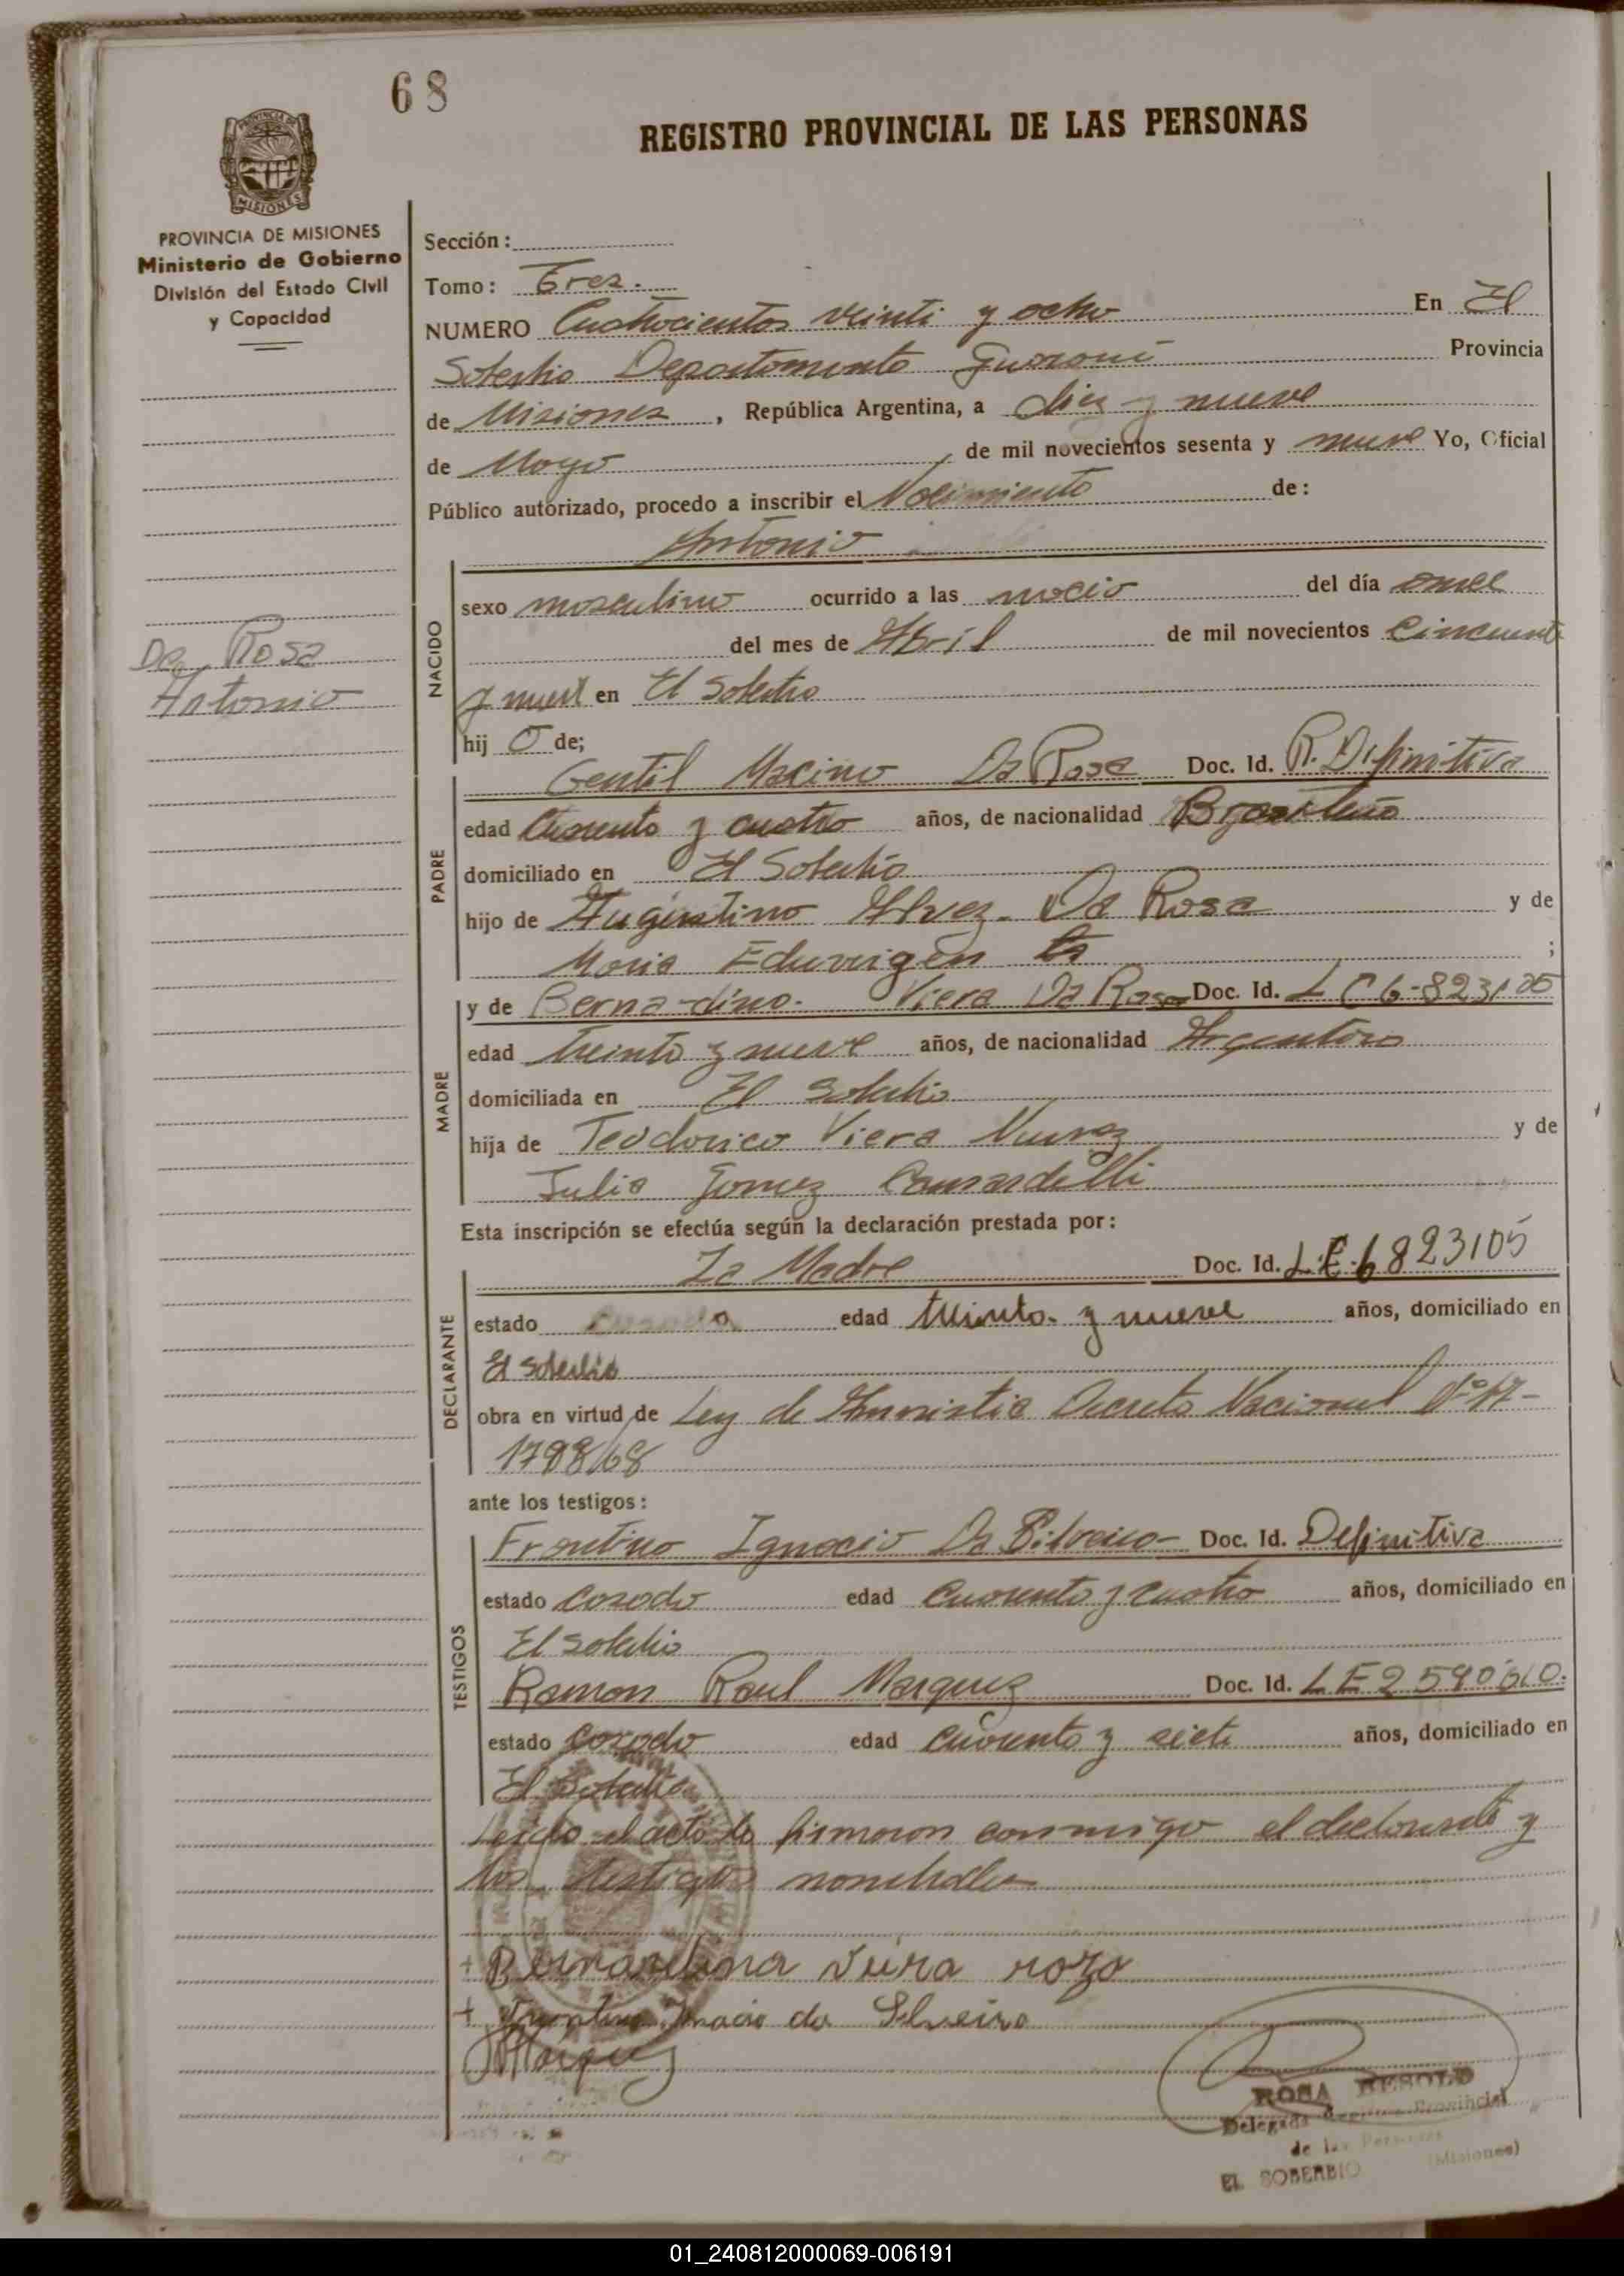 68
REGISTRO PROVINCIAL DE LAS PERSONAS
PROVINCIA DE
MISIONES
PROVINCIA DE MISIONES
Ministerio de Gobierno
División del Estado Civil
y Capacidad
Sección:
Tomo: Tres.
NUMERO Cuatrocientos veinti y ocho En El
Soberbio Departamento Guarani Provincia
de Misiones, República Argentina, a diez y nueve
de Mayo de mil novecientos sesenta y nueve Yo, Oficial
Público autorizado, procedo a inscribir el Nacimiento de:
Antonio
NACIDO
sexo masculino ocurrido a las del día once
del mes de Abril de mil novecientos Cincuenta
y nueve en El Soberbio
hijo de;
Da Rosa
Antonio
PADRE
Gentil Macino Da Rosa Doc. Id. R. Definitiva
edad Cuarenta y cuatro años, de nacionalidad Brasileño
domiciliado en El Soberbio
hijo de Augustino Alvez. Da Rosa y de
Maria Eduvrigen ;
MADRE
y de Bernardino. Viera Da Rosa Doc. Id. L C 6-823105
edad treinta y nueve años, de nacionalidad Argentina
domiciliada en El Soberbio
hija de Teodorico Viera Nunez y de
Julia Gomez
Esta inscripción se efectúa según la declaración prestada por:
DECLARANTE
La Madre Doc. Id. L.C.6823105
estado edad treinta y nueve años, domiciliado en
El Soberbio
obra en virtud de Ley de Amnistia Decreto Nacional Nº 17-
1798/68
ante los testigos:
TESTIGOS
Frontino Ignacio Da Silveira- Doc. Id. Definitiva
estado casado edad cuarenta y cuatro años, domiciliado en
El Soberbio
Ramon Raul Marquez Doc. Id. L E 2590610.
estado casado edad cuarenta y siete años, domiciliado en
El Soberbio
Leida el acta la firmaron conmigo el declarante y
los testigos nombrados
+ Bernardina veira roza
+ Frontino Inacio da Silveira
RMarquez
ROSA BESOLD
Delegada Registro Provincial
de las Personas
EL SOBERBIO (Misiones)
01_240812000069-006191